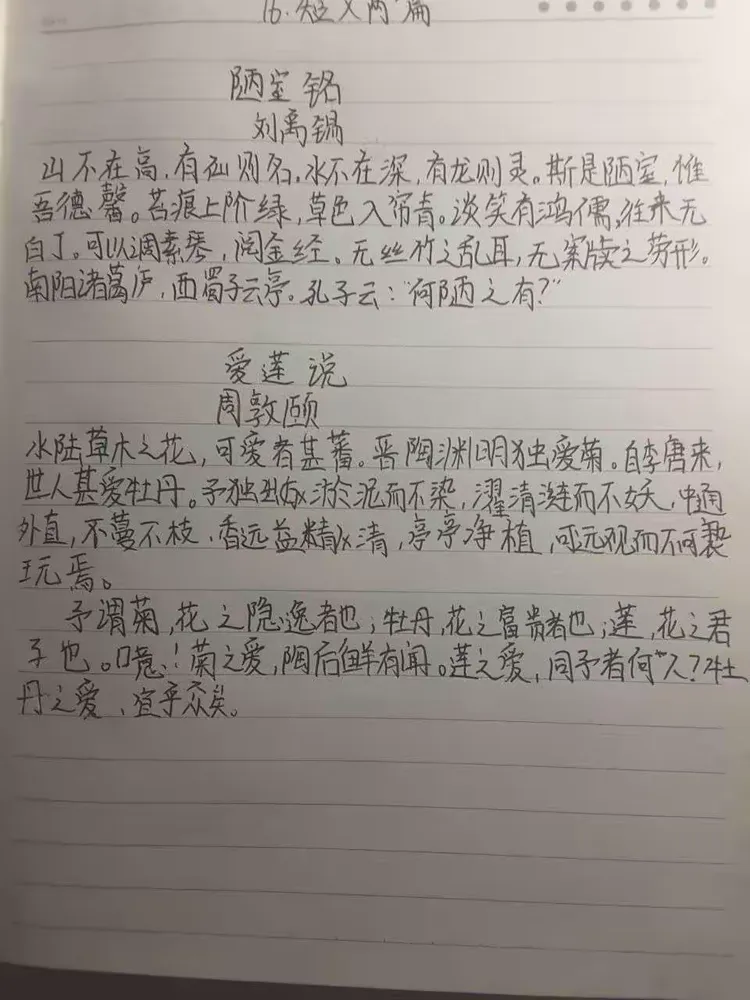 16.短文两篇
陋室铭
刘禹锡
山不在高,有仙则名。水不在深,有龙则灵。斯是陋室,惟
吾德馨。苔痕上阶绿,草色入帘青。淡笑有鸿儒,往来无
白丁。可以调素琴,阅金经。无丝竹之乱耳,无案牍之劳形。
南阳诸葛庐,西蜀子云亭。孔子云:"何陋之有?"
爱莲说
周敦颐
水陆草木之花,可爱者甚蕃。晋陶渊明独爱菊。自李唐来,
世人甚爱牡丹。予独 淤泥而不染,濯清涟而不妖,中通
外直,不蔓不枝,香远益 清,亭亭净植,可远观而不可亵
玩焉。
予谓菊,花之隐逸者也;牡丹,花之富贵者也;莲,花之君
子也。噫!菊之爱,陶后鲜有闻。莲之爱,同予者何人?牡
丹之爱,宜乎众矣。